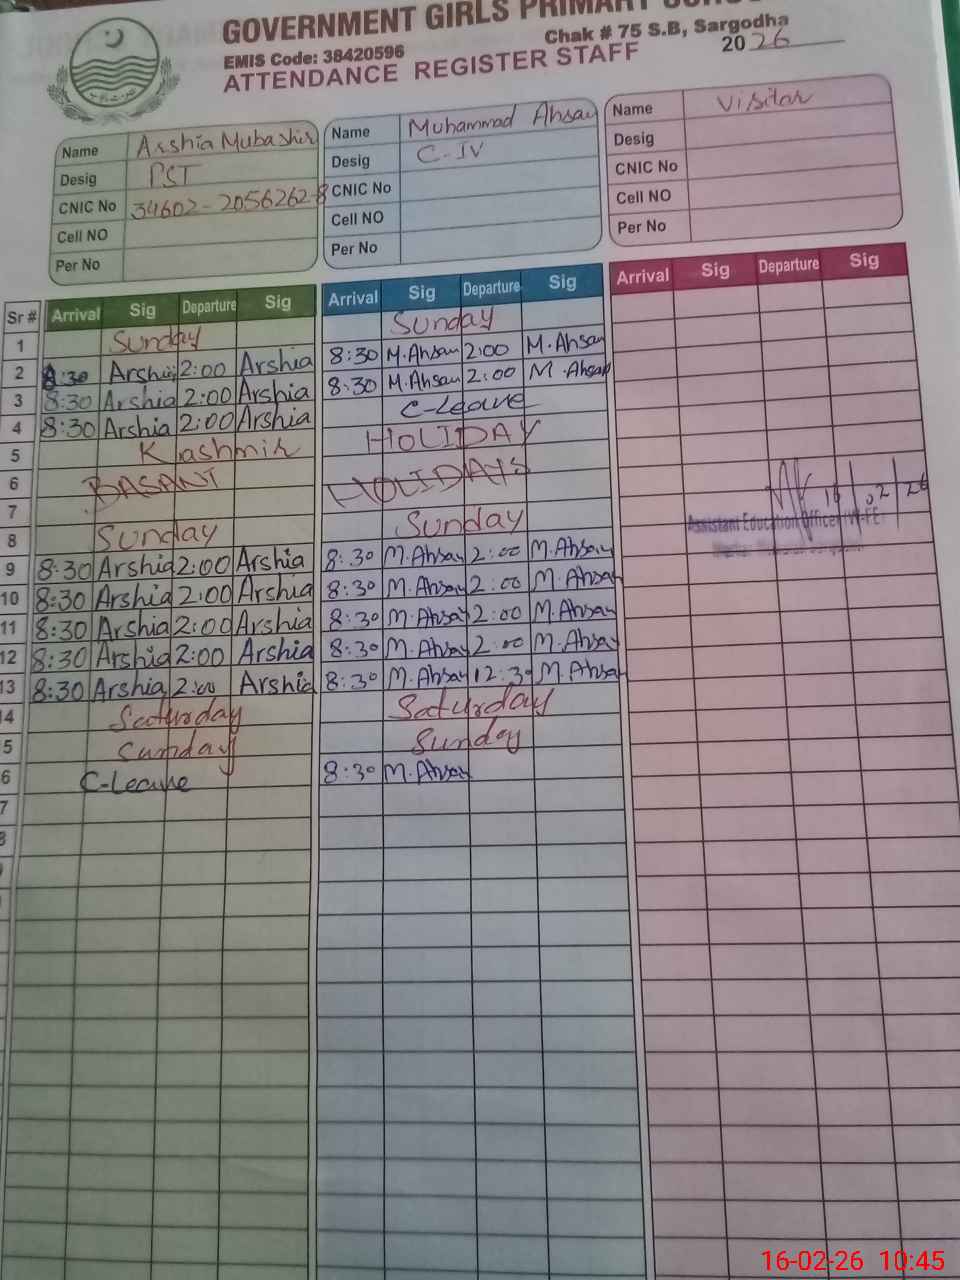 GOVERNMENT GIRLS PRIMARY SCHOO
Chak # 75 S.B, Sargodha
EMIS Code: 38420596
ATTENDANCE REGISTER STAFF 2026
Name Arshia Mubashir
Desig PST
CNIC No 34602-2056262-8
Cell NO
Per No
Name Muhammad Ahsan
Desig C-IV
CNIC No
Cell NO
Per No
Name Visitor
Desig
CNIC No
Cell NO
Per No
Sr # Arrival Sig Departure Sig Arrival Sig Departure Sig Arrival Sig Departure Sig
1 Sunday Sunday
2 8:30 Arshia 2:00 Arshia 8:30 M.Ahsan 2:00 M.Ahsan
3 8:30 Arshia 2:00 Arshia 8:30 M.Ahsan 2:00 M.Ahsan
4 8:30 Arshia 2:00 Arshia C-Leave
5 Kashmir HOLIDAY
6 BASANT HOLIDAYS
7
8 Sunday Sunday
16/02/26
Assistant Education Officer (W-EE)
9 8:30 Arshia 2:00 Arshia 8:30 M.Ahsan 2:00 M.Ahsan
10 8:30 Arshia 2:00 Arshia 8:30 M.Ahsan 2:00 M.Ahsan
11 8:30 Arshia 2:00 Arshia 8:30 M.Ahsan 2:00 M.Ahsan
12 8:30 Arshia 2:00 Arshia 8:30 M.Ahsan 2:00 M.Ahsan
13 8:30 Arshia 2:00 Arshia 8:30 M.Ahsan 12:30 M.Ahsan
14 Saturday Saturday
5 Sunday Sunday
6 C-Leave 8:30 M.Ahsan
7
8
16-02-26 10:45